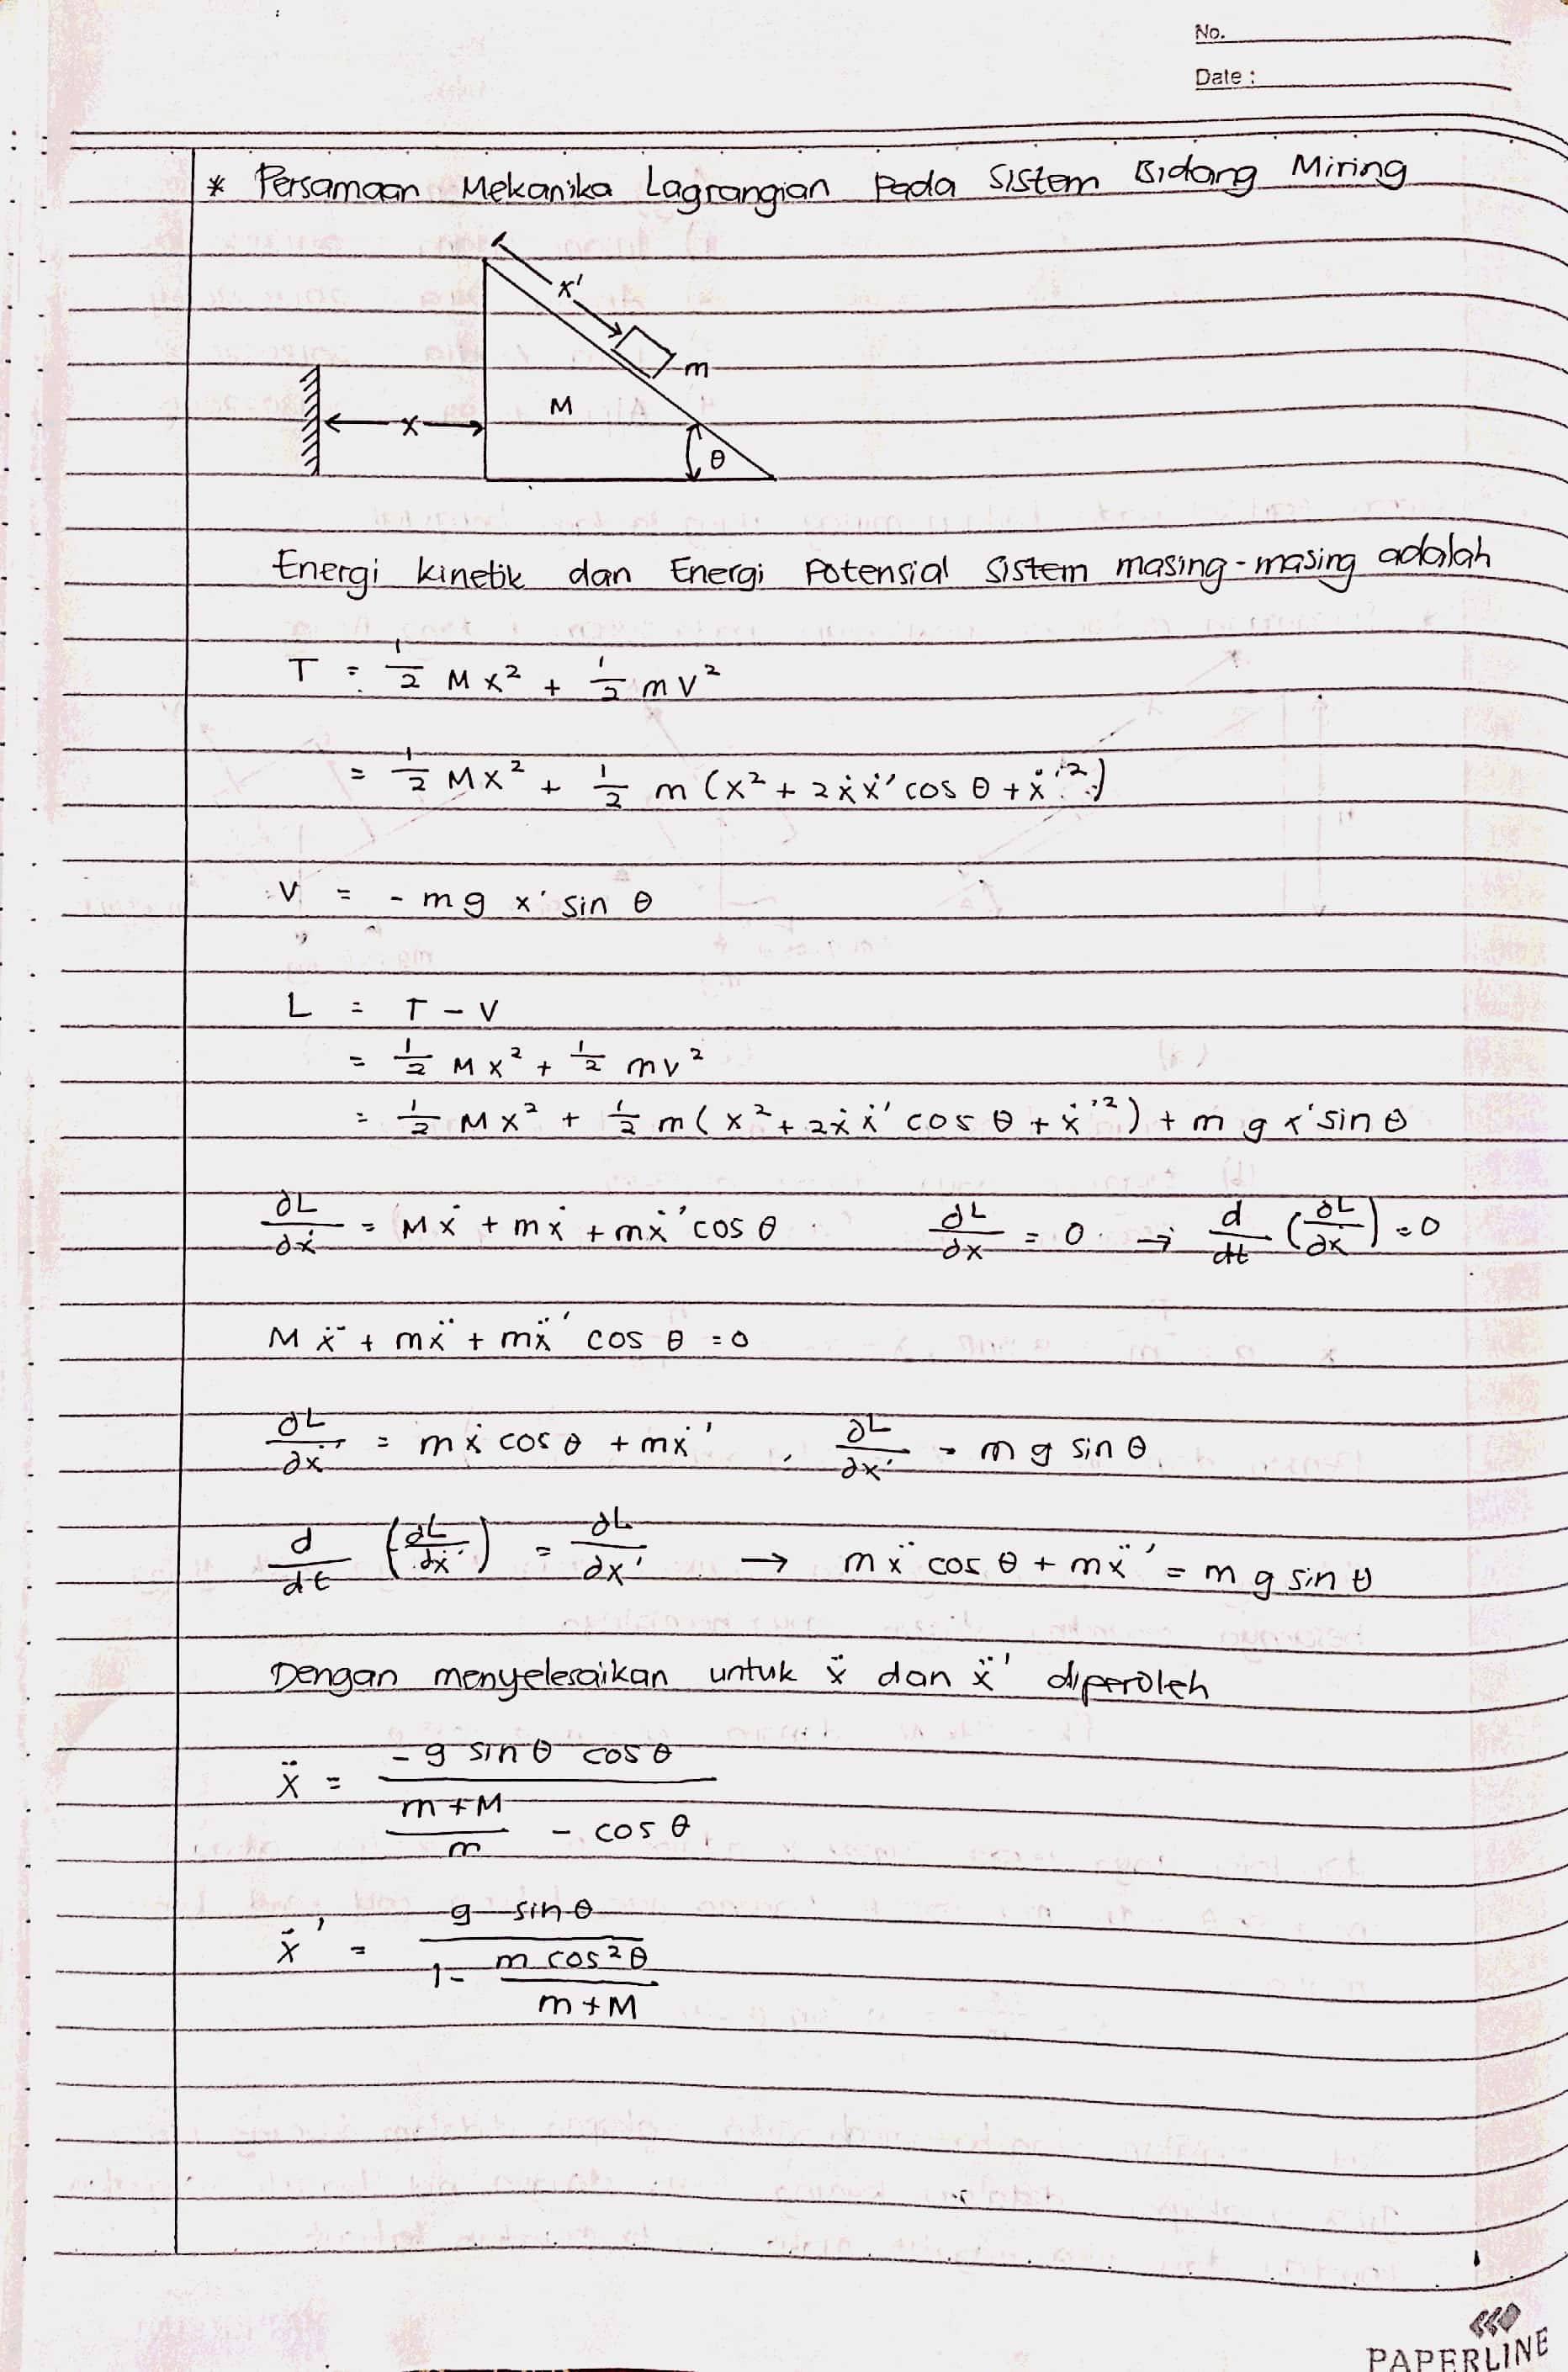 No.
Date :
* Persamaan Mekanika Lagrangian Pada Sistem Bidang Miring
x'
m
M
x
θ
Energi kinetik dan Energi Potensial Sistem masing-masing adalah
T = 1/2 Mx² + 1/2 mv²
= 1/2 Mx² + 1/2 m (x² + 2ẋẋ' cos θ + ẋ'²)
V = - mg x' sin θ
L = T - V
= 1/2 Mx² + 1/2 mv²
= 1/2 Mx² + 1/2 m(x² + 2ẋẋ' cos θ + ẋ'²) + m g x' sin θ
∂L/∂ẋ = Mẋ + mẋ + mẋ' cos θ ∂L/∂x = 0 → d/dt (∂L/∂ẋ) = 0
Mẍ + mẍ + mẍ' cos θ = 0
∂L/∂ẋ' = mẋ cos θ + mẋ' , ∂L/∂x' = m g sin θ
d/dt (∂L/∂ẋ') = ∂L/∂x' → mẍ cos θ + mẍ' = m g sin θ
Dengan menyelesaikan untuk ẍ dan ẍ' diperoleh
ẍ = (-g sin θ cos θ)/((m+M)/m - cos θ)
ẍ' = (g sin θ)/(1 - (m cos²θ)/(m+M))
PAPERLINE